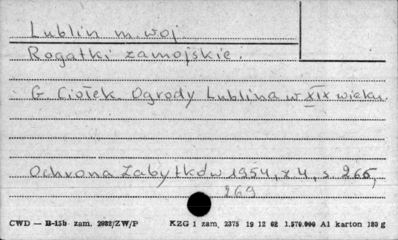 Lublin m. woj.
Rogatki zamojskie.
G. Ciołek Ogrody Lublina w XIX wieku.
Ochrona Zabytków 1954, z 4, s. 266,
269
CWD — B-15b zam. 2982/ZW/P KZG 1 zam. 2375 19 12 62 1.570.000 A1 karton 180 g